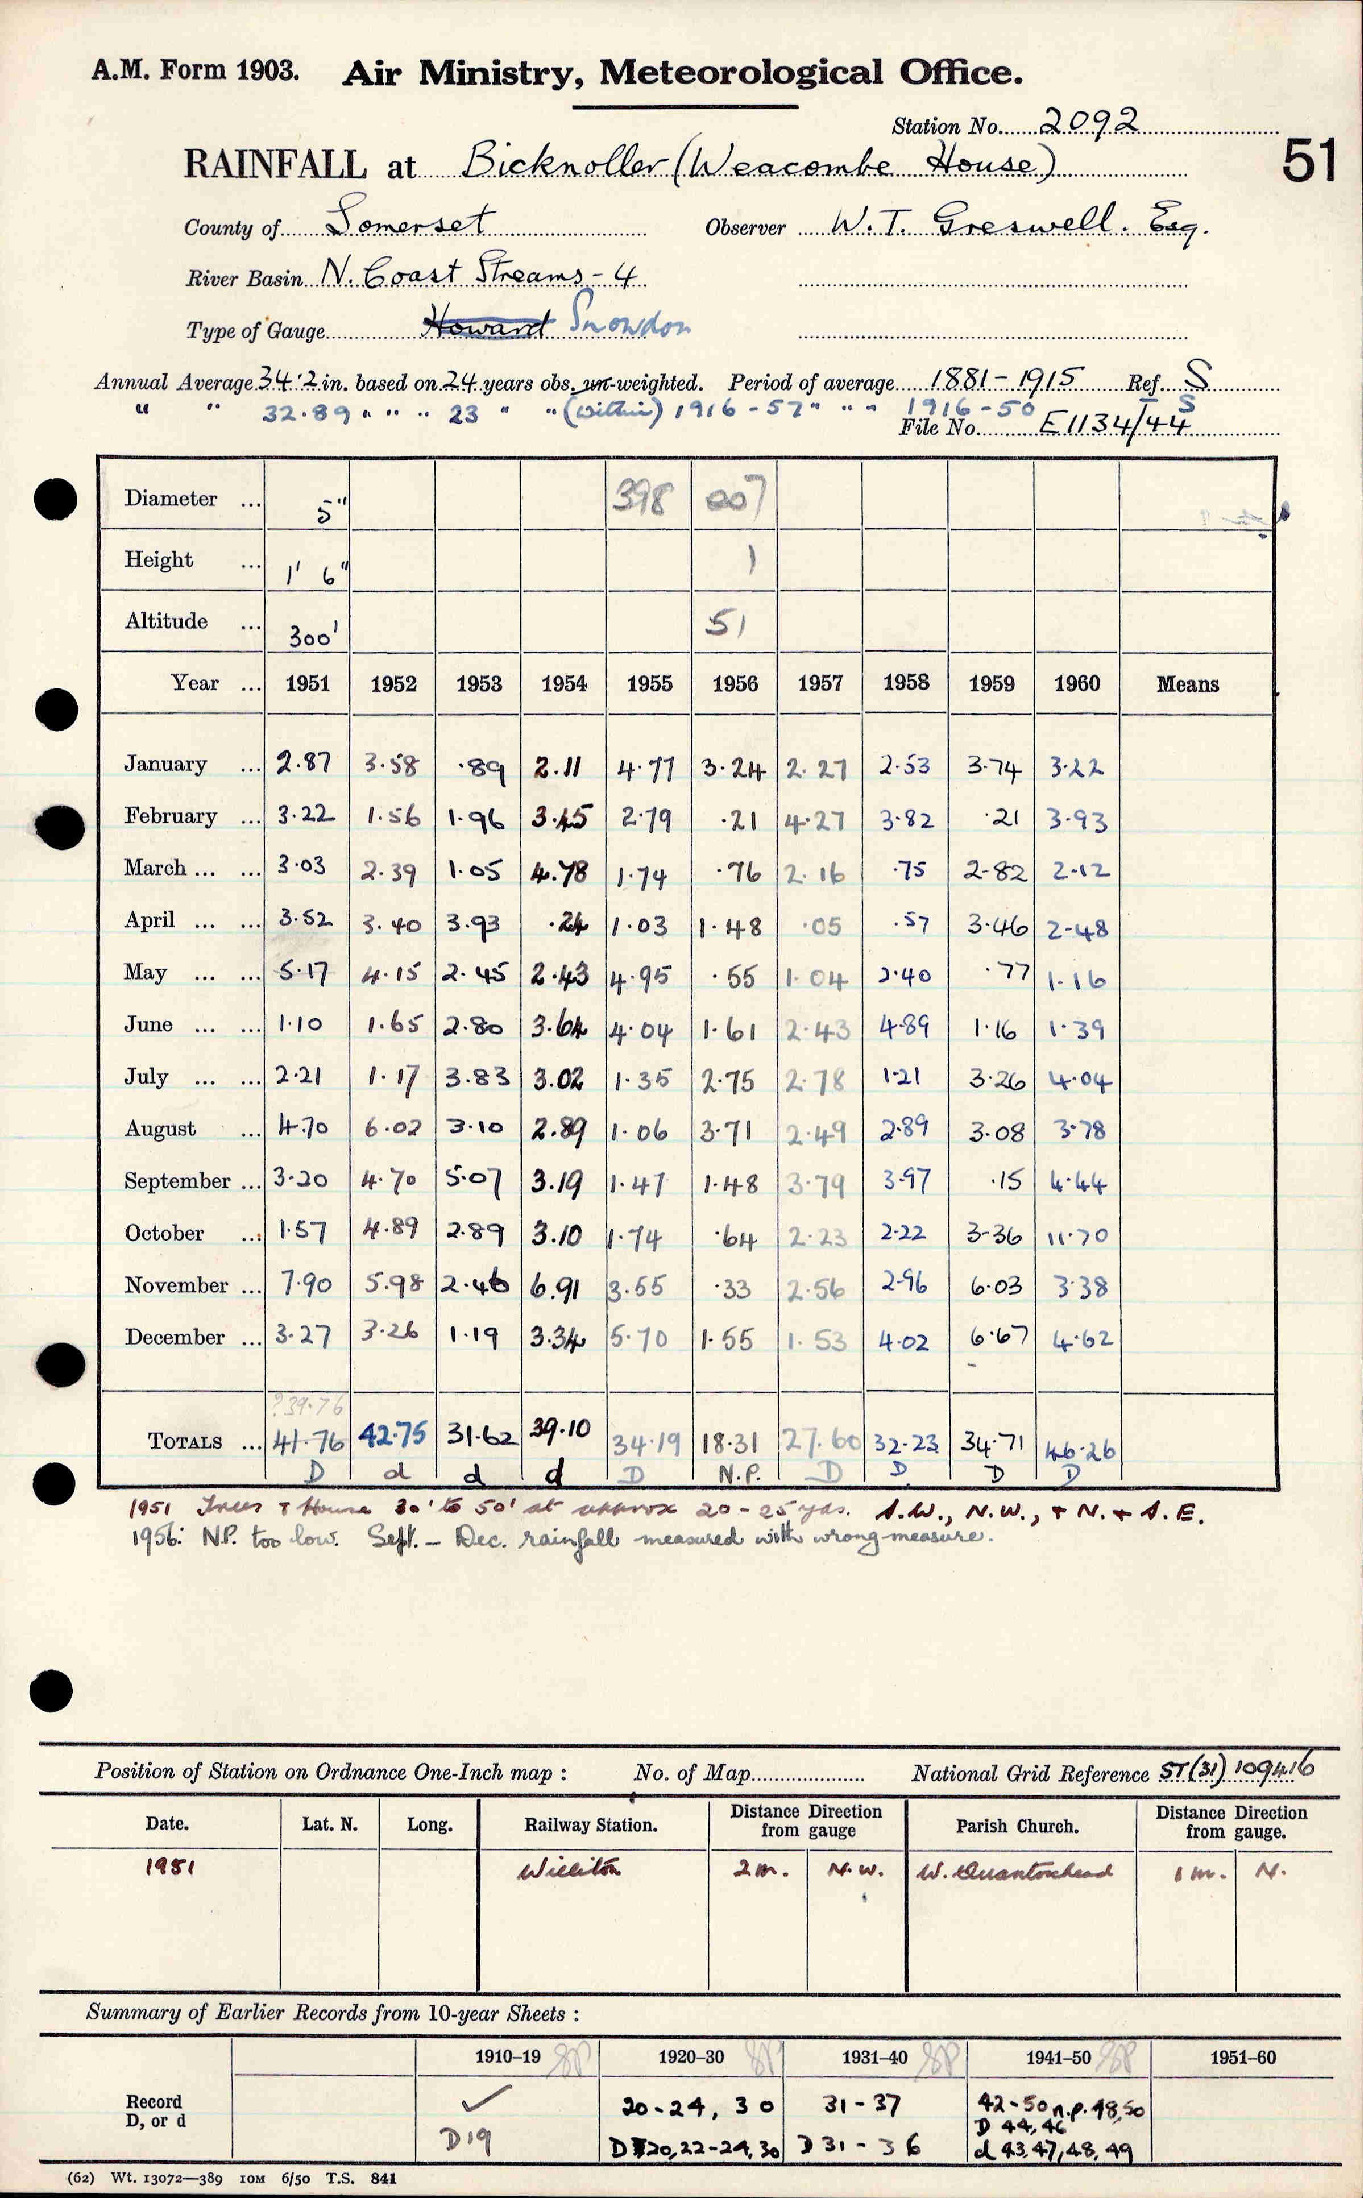 A.M. Form 1903. Air Ministry, Meteorological Office.
Station No. 2092
51
RAINFALL at Bicknoller (Weacombe House)
County of Somerset Observer W. T. Greswell. Esq.
River Basin N. Coast Streams - 4
Type of Gauge Howard Snowdon
Annual Average 34.2 in. based on 24 years obs. un-weighted. Period of average 1881 - 1915 Ref. S
" " 32.89 " " " 23 " " (within) 1916 - 57 " " " 1916 - 50 S
File No. E1134/44
Diameter ... 5" 398 007
Height ... 1' 6" 1
Altitude ... 300' 51
Year ... 1951 1952 1953 1954 1955 1956 1957 1958 1959 1960 Means
January ... 2.87 3.58 .89 2.11 4.77 3.24 2.27 2.53 3.74 3.22
February ... 3.22 1.56 1.96 3.45 2.79 .21 4.27 3.82 .21 3.93
March ... ... 3.03 2.39 1.05 4.78 1.74 .76 2.16 .75 2.82 2.12
April ... ... 3.52 3.40 3.93 .24 1.03 1.48 .05 .57 3.46 2.48
May ... ... 5.17 4.15 2.45 2.43 4.95 .55 1.04 2.40 .77 1.16
June ... ... 1.10 1.65 2.80 3.64 4.04 1.61 2.43 4.89 1.16 1.39
July ... ... 2.21 1.17 3.83 3.02 1.35 2.75 2.78 1.21 3.26 4.04
August ... 4.70 6.02 3.10 2.89 1.06 3.71 2.49 2.89 3.08 3.78
September ... 3.20 4.70 5.07 3.19 1.47 1.48 3.79 3.97 .15 4.44
October ... 1.57 4.89 2.89 3.10 1.74 .64 2.23 2.22 3.36 11.70
November ... 7.90 5.98 2.46 6.91 3.55 .33 2.56 2.96 6.03 3.38
December ... 3.27 3.26 1.19 3.34 5.70 1.55 1.53 4.02 6.67 4.62
?39.76
TOTALS ... 41.76 42.75 31.62 39.10 34.19 18.31 27.60 32.23 34.71 46.26
D d d d D N.P. D D D D
1951 Trees & House 30' to 50' at approx 20 - 25 yds. S.W., N.W., & N. & S.E.
1956: N.P. too low. Sept. - Dec. rainfall measured with wrong measure.
Position of Station on Ordnance One-Inch map : No. of Map National Grid Reference ST(31) 109416
Date. Lat. N. Long. Railway Station. Distance Direction from gauge Parish Church. Distance Direction from gauge.
1951 Williton 2 m. N.W. W. Quantoxhead 1 m. N.
Summary of Earlier Records from 10-year Sheets :
1910-19 1920-30 1931-40 1941-50 1951-60
Record ✓ 20-24, 30 31-37 42-50 n.p. 48,50
D, or d D 44, 46
D19 D 20,22-24,30 D 31-36 d 43,47,48,49
(62) Wt. 13072—389 10M 6/50 T.S. 841